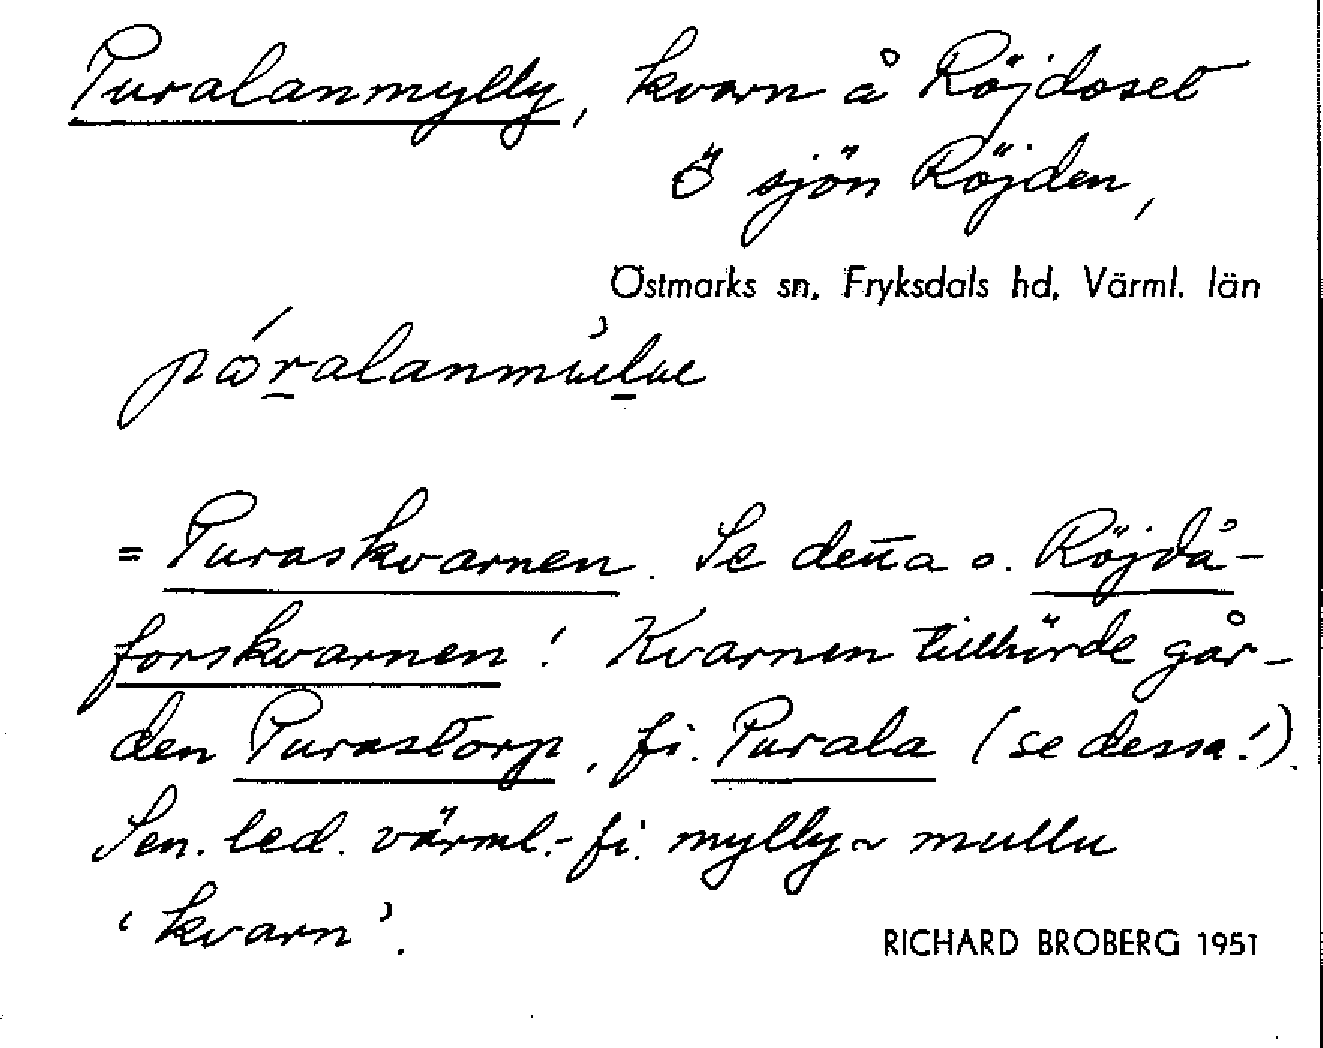 Puralanmylly, kvarn å Röjdoset
Ö sjön Röjden,
Östmarks sn, Fryksdals hd, Värml. län
= Puraskvarnen. Se denna o. Röjdå-
forskvarnen! Kvarnen tillhörde går-
den Purastorp, fi. Purala (se dessa!).
Sen. led. värml.-fi. mylly ~ mullu
'kvarn'.
RICHARD BROBERG 1951